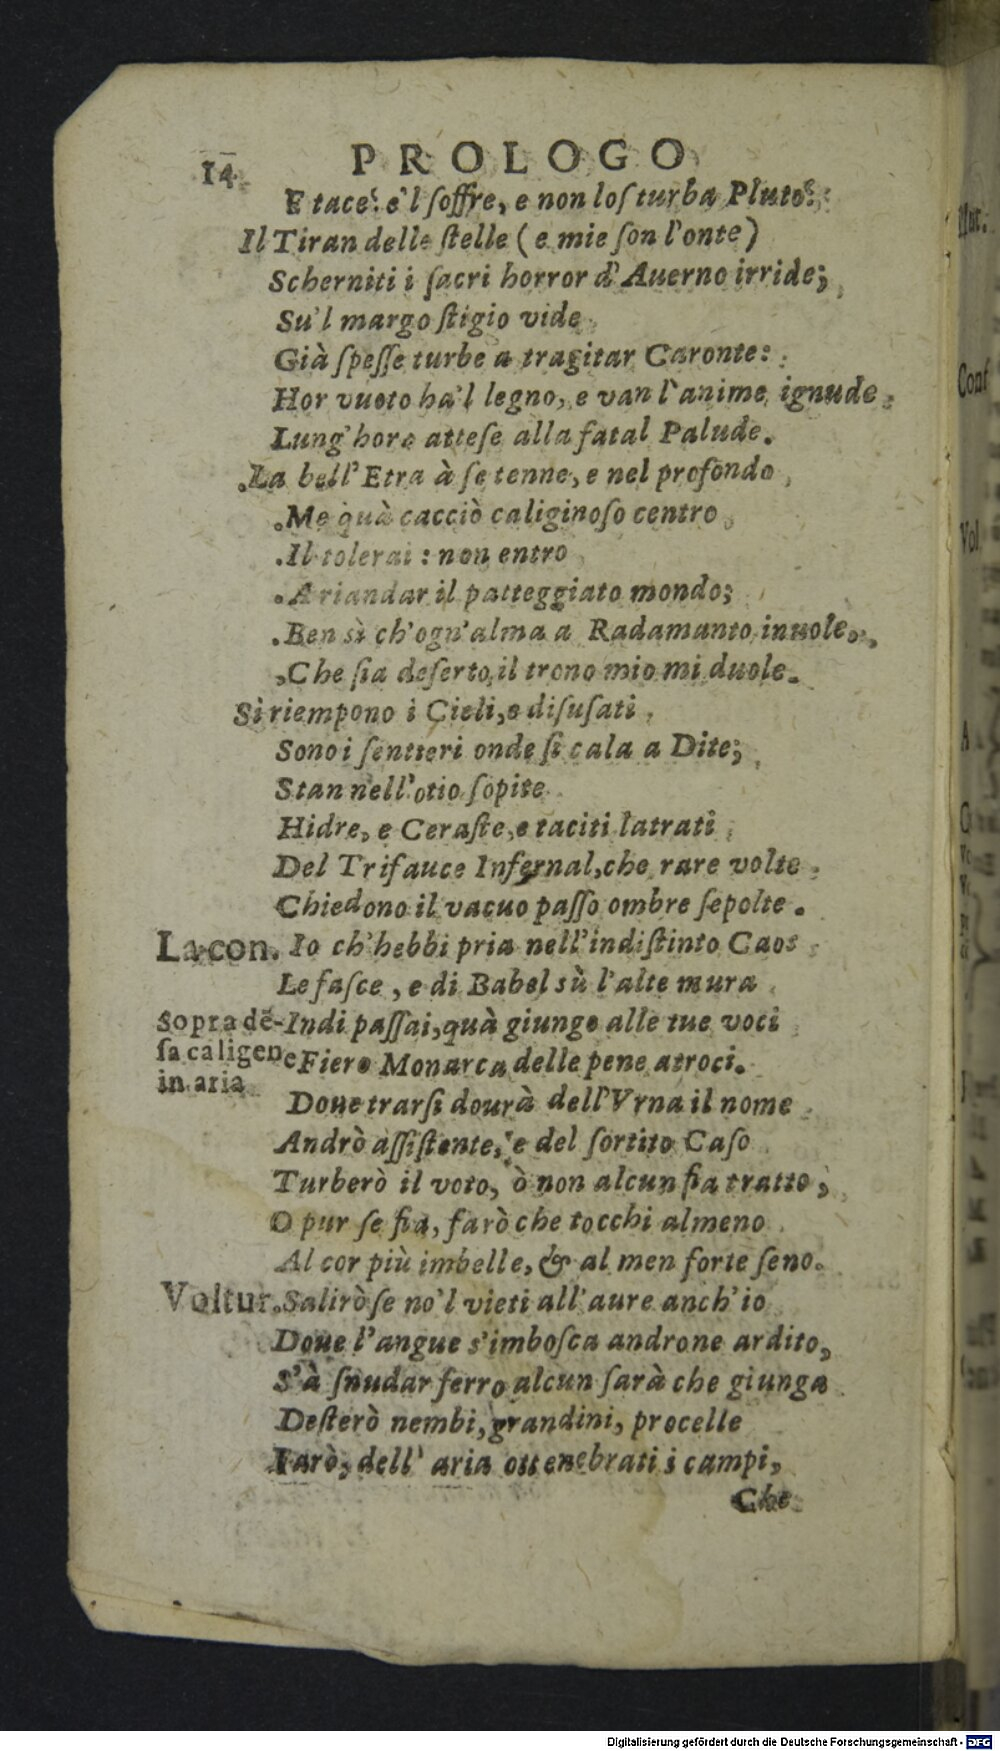 14 PROLOGO
E tace? e'l ſoffre, e non loſ turba Pluto?
Il Tiran delle ſtelle (e mie ſon l'onte)
Scherniti i ſacri horror d'Auerno irride;
Su'l margo ſtigio vide
Già ſpeſſe turbe a tragitar Caronte:
Hor vuoto ha'l legno, e van l'anime ignude
Lung'hore atteſe alla fatal Palude.
La bell'Etra à ſe tenne, e nel profondo
Me quà cacciò caliginoſo centro
Il tolerai: non entro
A riandar il patteggiato mondo;
Ben sì ch'ogn'alma a Radamanto inuole,
Che ſia deſerto il trono mio mi duole.
Si riempono i Cieli, e diſuſati
Sono i ſentieri onde ſi cala a Dite;
Stan nell'otio ſopite
Hidre, e Ceraſte, e taciti latrati
Del Trifauce Infernal, che rare volte
Chiedono il vacuo paſſo ombre ſepolte.
Lacon. Io ch'hebbi pria nell'indiſtinto Caos
Le faſce, e di Babel sù l'alte mura
Sopra dē- Indi paſſai, quà giungo alle tue voci
ſa caligene Fiero Monarca delle pene atroci.
in aria
Doue trarſi dourà dell'Vrna il nome
Andrò aſſiſtente, e del ſortito Caſo
Turberò il voto, ò non alcun fia tratto;
O pur ſe fia, farò che tocchi almeno
Al cor più imbelle, & al men forte ſeno.
Voltur. Salirò ſe no'l vieti all'aure anch'io
Doue l'angue s'imboſca androne ardito,
S'à ſnudar ferro alcun ſarà che giunga
Deſterò nembi, grandini, procelle
Farò, dell' aria ottenebrati i campi,
Che
Digitalisierung gefördert durch die Deutsche Forschungsgemeinschaft - DFG